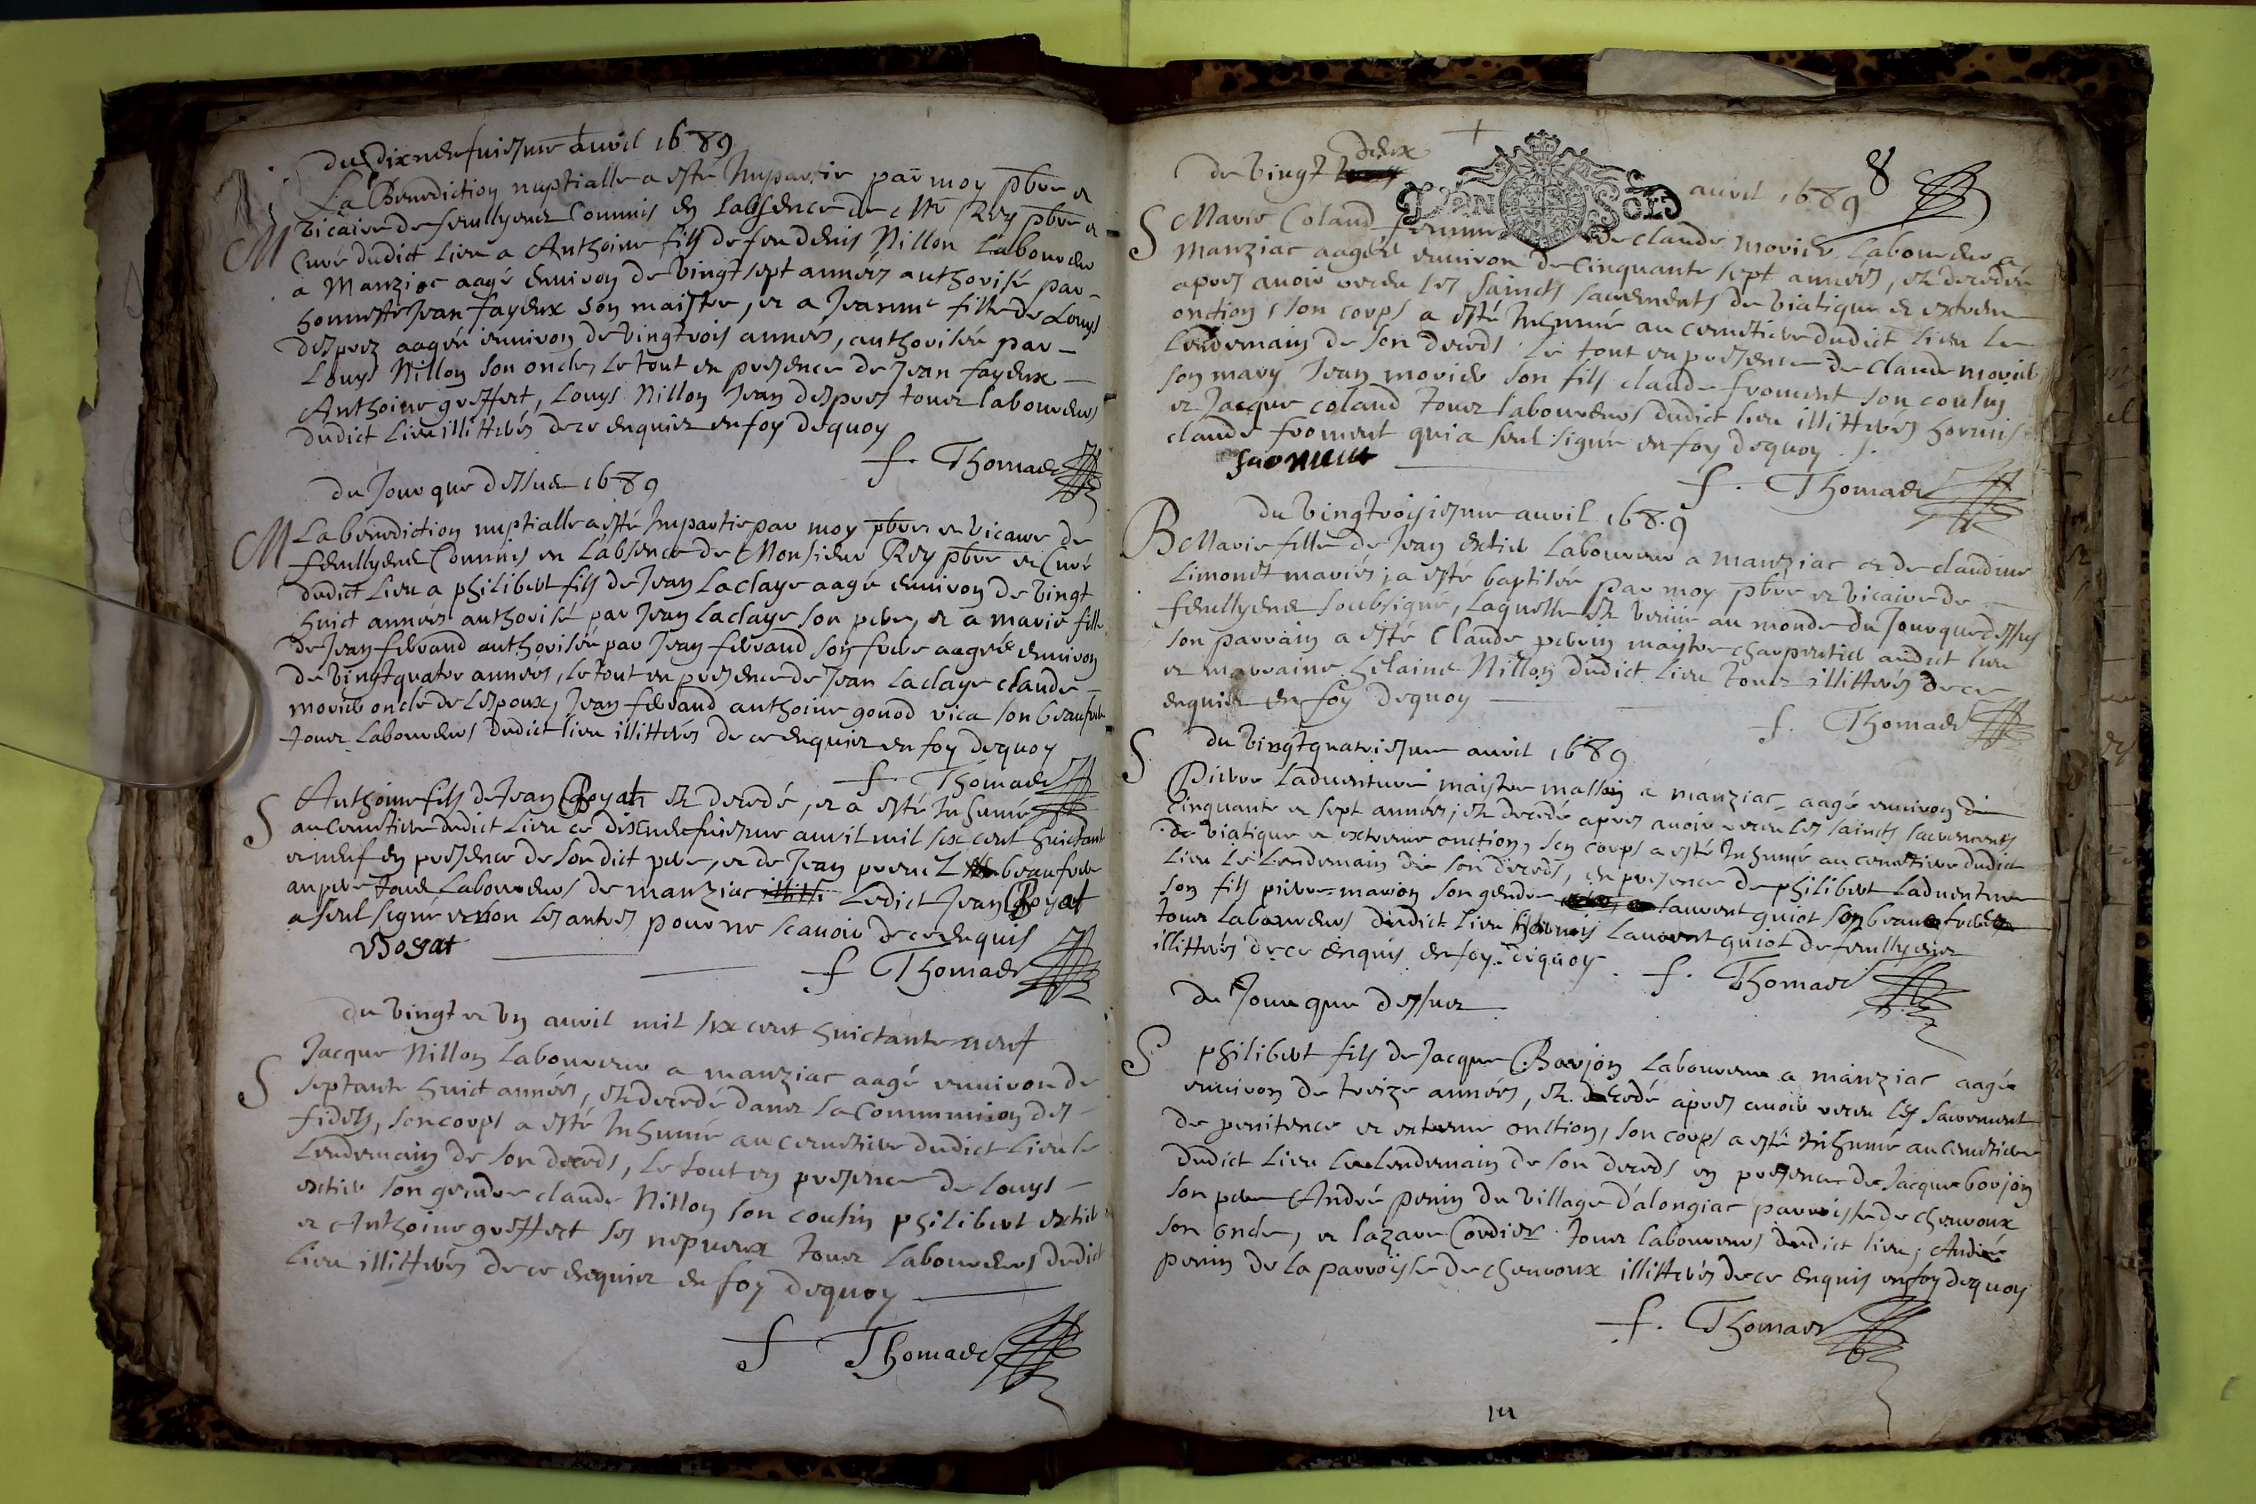 du Dixneufuiesme auvil 1689
M La Benediction nuptialle a esté Impartie par moy pbre et
vicaire de feullyens Commis en labsence de Mre Rey pbre et
Curé dudict Lieu a Anthoine fils de feu denis Nillon Laboureur
a Manziac aagé environ de vingt sept années authorisé par
honneste Jean fayeux son maistre, et a Jeanne fille de Louys
despres aagée environ de vingt trois années, authorisée par
Louys Nillon son oncle, le tout en presence de Jean fayeux
Anthoine greffert, Louys Nillon Jean despres tous laboureurs
dudict Lieu illitterés de ce enquis en foy dequoy
f. Thomas
du Jour que dessus 1689
M La benediction nuptialle a esté Impartie par moy pbre et vicaire de
feullyens Commis en Labsence de Monsieur Rey pbre et Curé
dudict Lieu a philibert fils de Jean Laclaye aagé environ de vingt
huict années authorisé par Jean Laclaye son pere, et a marie fille
de Jean feraud authorisée par Jean feraud son frere aagée environ
de vingt quatre années, le tout en presence de Jean Laclaye claude
morier oncle de Lespoux, Jean feraud anthoine gonod son beaufrere
tous Laboureurs dudict lieu illitterés de ce enquis en foy dequoy
f Thomas
S Anthoine fils de Jean Boyat est decedé, et a esté Inhumé
au cemetiere dudict Lieu ce dixneufuiesme auvil mil six cent huictante
et neuf en presence de son dict pere, et de Jean beaufrere
au pere tous Laboureurs de manziac Ledict Jean Boyat
a seul signé et non les autres pour ne scavoir de ce enquis
Boyat
f Thomas
du vingt et un auvil mil six cent huictante neuf
S Jacque Nillon Laboureur a manziac aagé environ de
septante huict années, est decedé dans la Communion des
fideles, son corps a esté Inhumé au cemetiere dudict Lieu le
Lendemain de son deceds, le tout en presence de Louys
extier son gendre claude Nillon son cousin philibert extier
et Anthoine greffert ses nepveux tous Laboureurs dudict
Lieu illitterés de ce enquis en foy dequoy
f Thomas
8
du vingt deux auvil 1689
VN SOL
S Marie Coland femme de claude morier Laboureur a
Manziac aagée environ de cinquante sept années, est decedée
apres avoir receu les saincts sacrements de viatique et extreme
onction, son corps a esté Inhumé au cemetiere dudict lieu le
Lendemain de son deceds le tout en presence de claude morier
son mary Jean morier son fils claude froment son cousin
et Jacque coland tous laboureurs dudict lieu illitterés hormis
claude froment qui a seul signé en foy dequoy
froment
f. Thomas
du vingt troisiesme auvil 1689
B Marie fille de Jean extier Laboureur a manziac et de claudine
Limonet mariés, a esté baptisée par moy pbre et vicaire de
feullyens soubsigné, laquelle est venue au monde du Jour que dessus
son parrain a esté Claude perrin maistre charpentier audict lieu
et marraine helaine Nillon dudict Lieu tous illitterés de ce
enquis en foy dequoy
f. Thomas
du vingt quatriesme auvil 1689
S Pierre Ladventure maistre masson a manziac aagé environ de
Cinquante et sept années, est decedé apres avoir receu les saincts sacrements
de viatique et extreme onction, son corps a esté Inhumé au cemetiere dudict
Lieu le Lendemain de son deceds, en presence de philibert Ladventure
son fils pierre marion son gendre laurent guiot son beaufrere
tous Laboureurs dudict Lieu hormis Laurent guiot de feullyens
illitterés de ce enquis en foy dequoy
f. Thomas
du Jour que dessus
S philibert fils de Jacque Borjon Laboureur a manziac aagé
environ de treize années, est decedé apres avoir receu les sacrement
de penitence et extreme onction, son corps a esté inhumé au cemetiere
dudict Lieu le Lendemain de son deceds en presence de Jacque borjon
son pere André perrin du village d'alongiac parroisse de chevroux
son oncle, et lazare Cordier tous laboureurs dudict lieu, André
perrin de la parroisse de chevroux illitterés de ce enquis en foy dequoy
f. Thomas